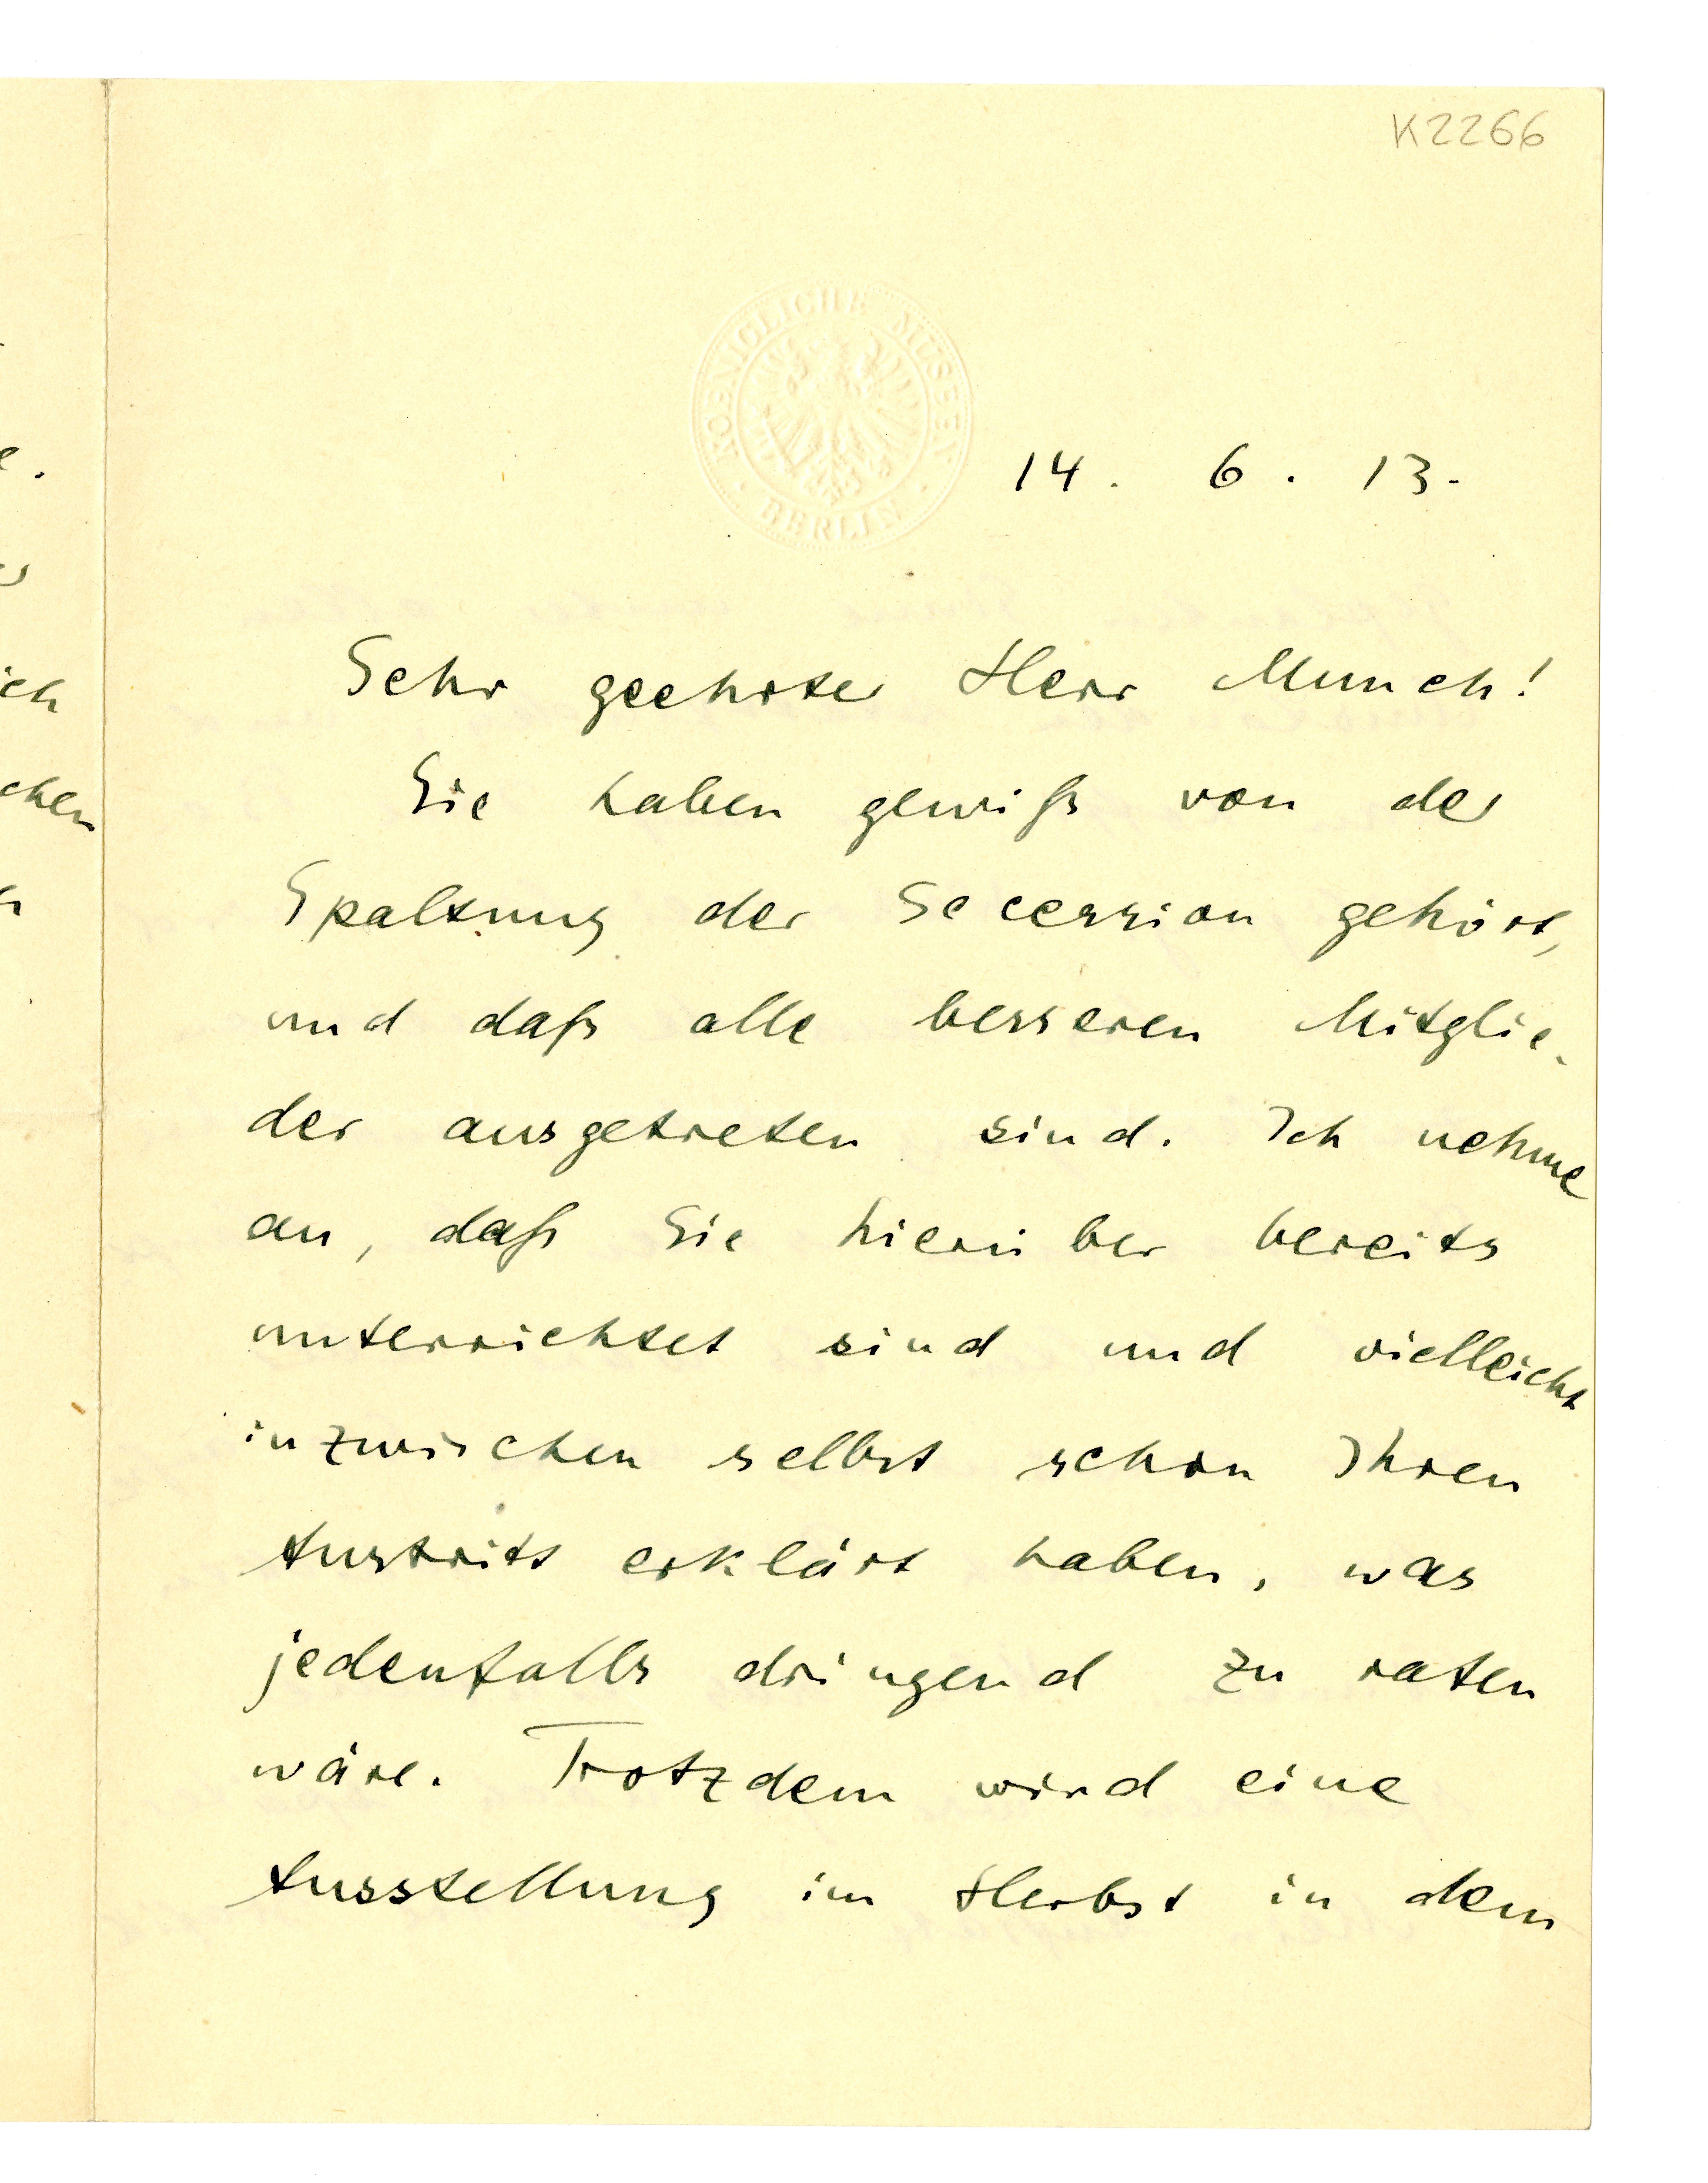 K2266
KOENIGLICHE MUSEEN
BERLIN
14. 6. 13.
Sehr geehrter Herr Munch!
Sie haben gewiß von der
Spaltung der Secession gehört,
und daß alle besseren Mitglie-
der ausgetreten sind. Ich nehme
an, daß Sie hierüber bereits
unterrichtet sind und vielleicht
inzwischen selbst schon Ihren
Austritt erklärt haben, was
jedenfalls dringend zu raten
wäre. Trotzdem wird eine
Ausstellung im Herbst in dem